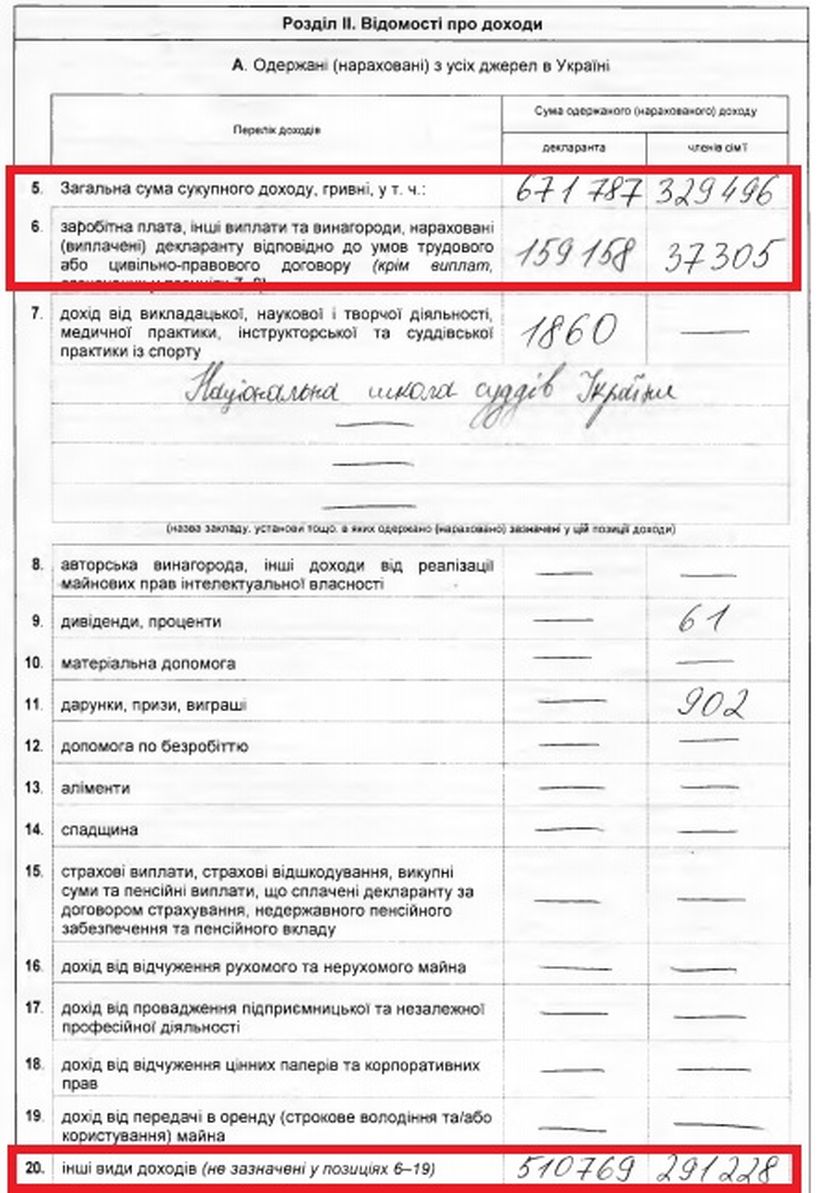 Розділ II. Відомості про доходи
А. Одержані (нараховані) з усіх джерел в Україні
Перелік доходів
Сума одержаного (нарахованого) доходу
декларанта
членів сім'ї
5. Загальна сума сукупного доходу, гривні, у т. ч.: 671 787 329 496
6. заробітна плата, інші виплати та винагороди, нараховані
(виплачені) декларанту відповідно до умов трудового
або цивільно-правового договору (крім виплат, 159 158 37305
7. дохід від викладацької, наукової і творчої діяльності,
медичної практики, інструкторської та суддівської
практики із спорту 1860 —
Національна школа суддів України
—
—
—
(назва закладу, установи тощо, в яких одержано (нараховано) зазначені у цій позиції доходи)
8. авторська винагорода, інші доходи від реалізації
майнових прав інтелектуальної власності — —
9. дивіденди, проценти — 61
10. матеріальна допомога — —
11. дарунки, призи, виграші — 902
12. допомога по безробіттю — —
13. аліменти — —
14. спадщина — —
15. страхові виплати, страхові відшкодування, викупні
суми та пенсійні виплати, що сплачені декларанту за
договором страхування, недержавного пенсійного
забезпечення та пенсійного вкладу — —
16. дохід від відчуження рухомого та нерухомого майна — —
17. дохід від провадження підприємницької та незалежної
професійної діяльності — —
18. дохід від відчуження цінних паперів та корпоративних
прав — —
19. дохід від передачі в оренду (строкове володіння та/або
користування) майна — —
20. інші види доходів (не зазначені у позиціях 6–19) 510769 291228